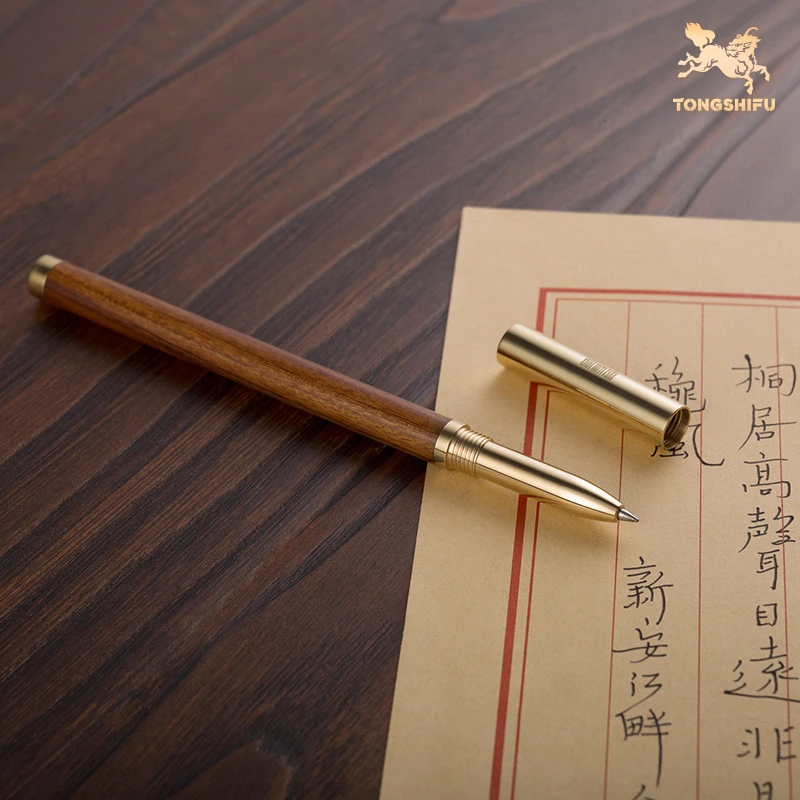 TONGSHIFU
桐居高聲自遠非
風
新安江畔